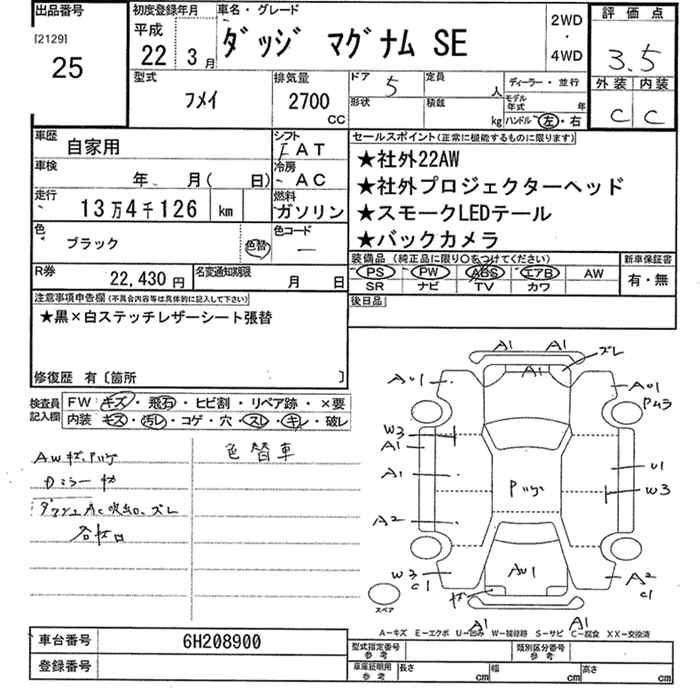 出品番号
[2129]
25
初度登録年月
平成
22 3月
車名・グレード
ダッジ マグナム SE
2WD
・
4WD
評価点
3.5
外装 内装
C C
型式
フメイ
排気量
2700
CC
ドア 5
形状
定員 人
積載 kg
ディーラー・並行
モデル年式 年
ハンドル 左・右
車歴
自家用
シフト
FAT
車検
年 月( 日)
冷房
AC
走行
13万4千126 km
燃料
ガソリン
色
ブラック
色替
色コード
―
R券
22,430円
名変通知期限
月 日
セールスポイント(正常に機能するものに限ります)
★社外22AW
★社外プロジェクターヘッド
★スモークLEDテール
★バックカメラ
装備品(純正品に限り○をつけてください)
PS PW ABS エアB AW
SR ナビ TV カワ
新車保証書
有・無
後日品
注意事項申告欄(不具合内容等は具体的に記入して下さい)
★黒×白ステッチレザーシート張替
修復歴 有〔箇所 〕
検査員記入欄
FW キズ・飛石・ヒビ割・リペア跡・×要
内装 キズ・汚レ・コゲ・穴・スレ・キレ・破レ
色替車
AWキズ
ミラー キズ
AC吹出口、ズレ
A1 A1
ズレ
A1
AU1
AU1
W3
A1
A1
U1
W3
A2
AU1
W3
C1
A2
C1
キズ
A1
A1
スペア
A-キズ E-エクボ U-凹み W-補修跡 S-サビ C-腐食 XX-交換済
車台番号
6H208900
登録番号
型式指定番号
参考
類別区分番号
参考
車庫証明用
参考
長さ cm
幅 cm
高さ cm